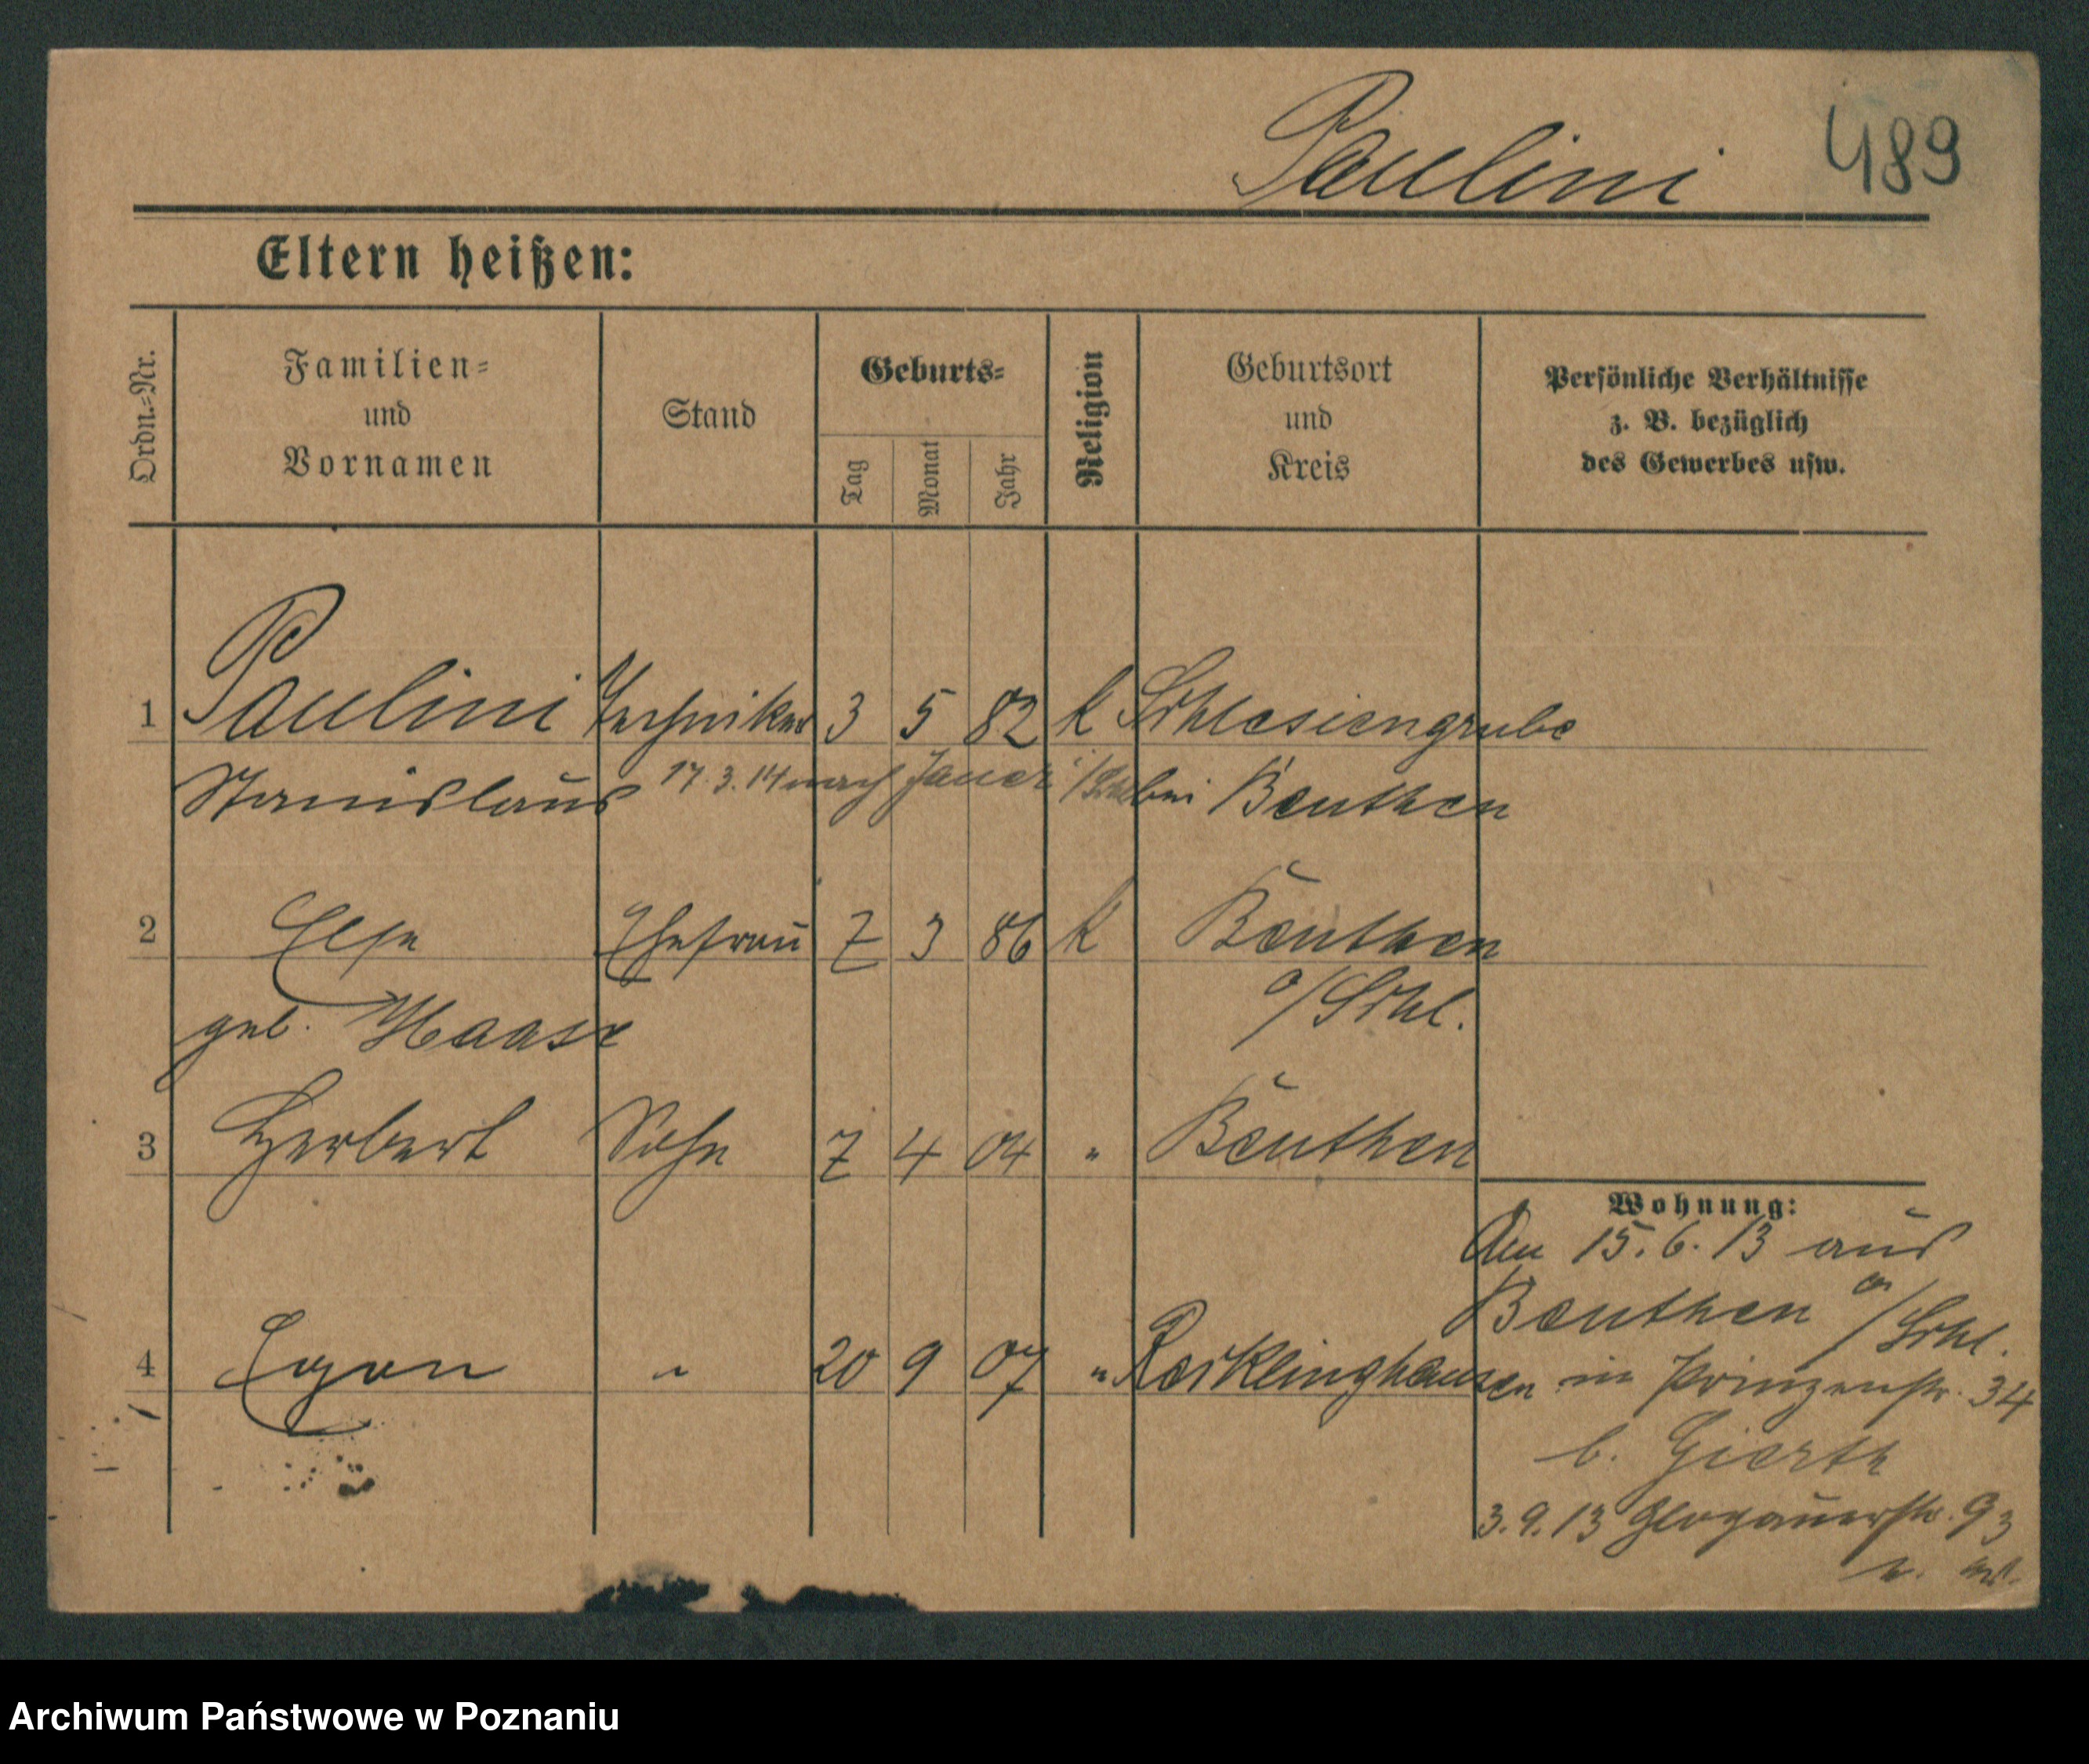 Paulini 489
Eltern heißen:
Ordn.-Nr. Familien- und Vornamen Stand Geburts- Tag Monat Jahr Religion Geburtsort und Kreis Persönliche Verhältnisse z. B. bezüglich des Gewerbes usw.
1 Paulini Techniker 3 5 82 k Schlesiengrube
Stanislaus 17.3.14 nach Jauer i/Schl bei Beuthen
2 Else Ehefrau 7 3 86 k Beuthen
geb. Haase o/Schl.
3 Herbert Sohn 7 4 04 " Beuthen
4 Egon " 20 9 07 " Recklinghausen
Wohnung:
Am 15.6.13 aus
Beuthen o/Schl.
in Prinzenstr. 34
b. Gierth
3.9.13 Glogauerstr. 93
Archiwum Państwowe w Poznaniu